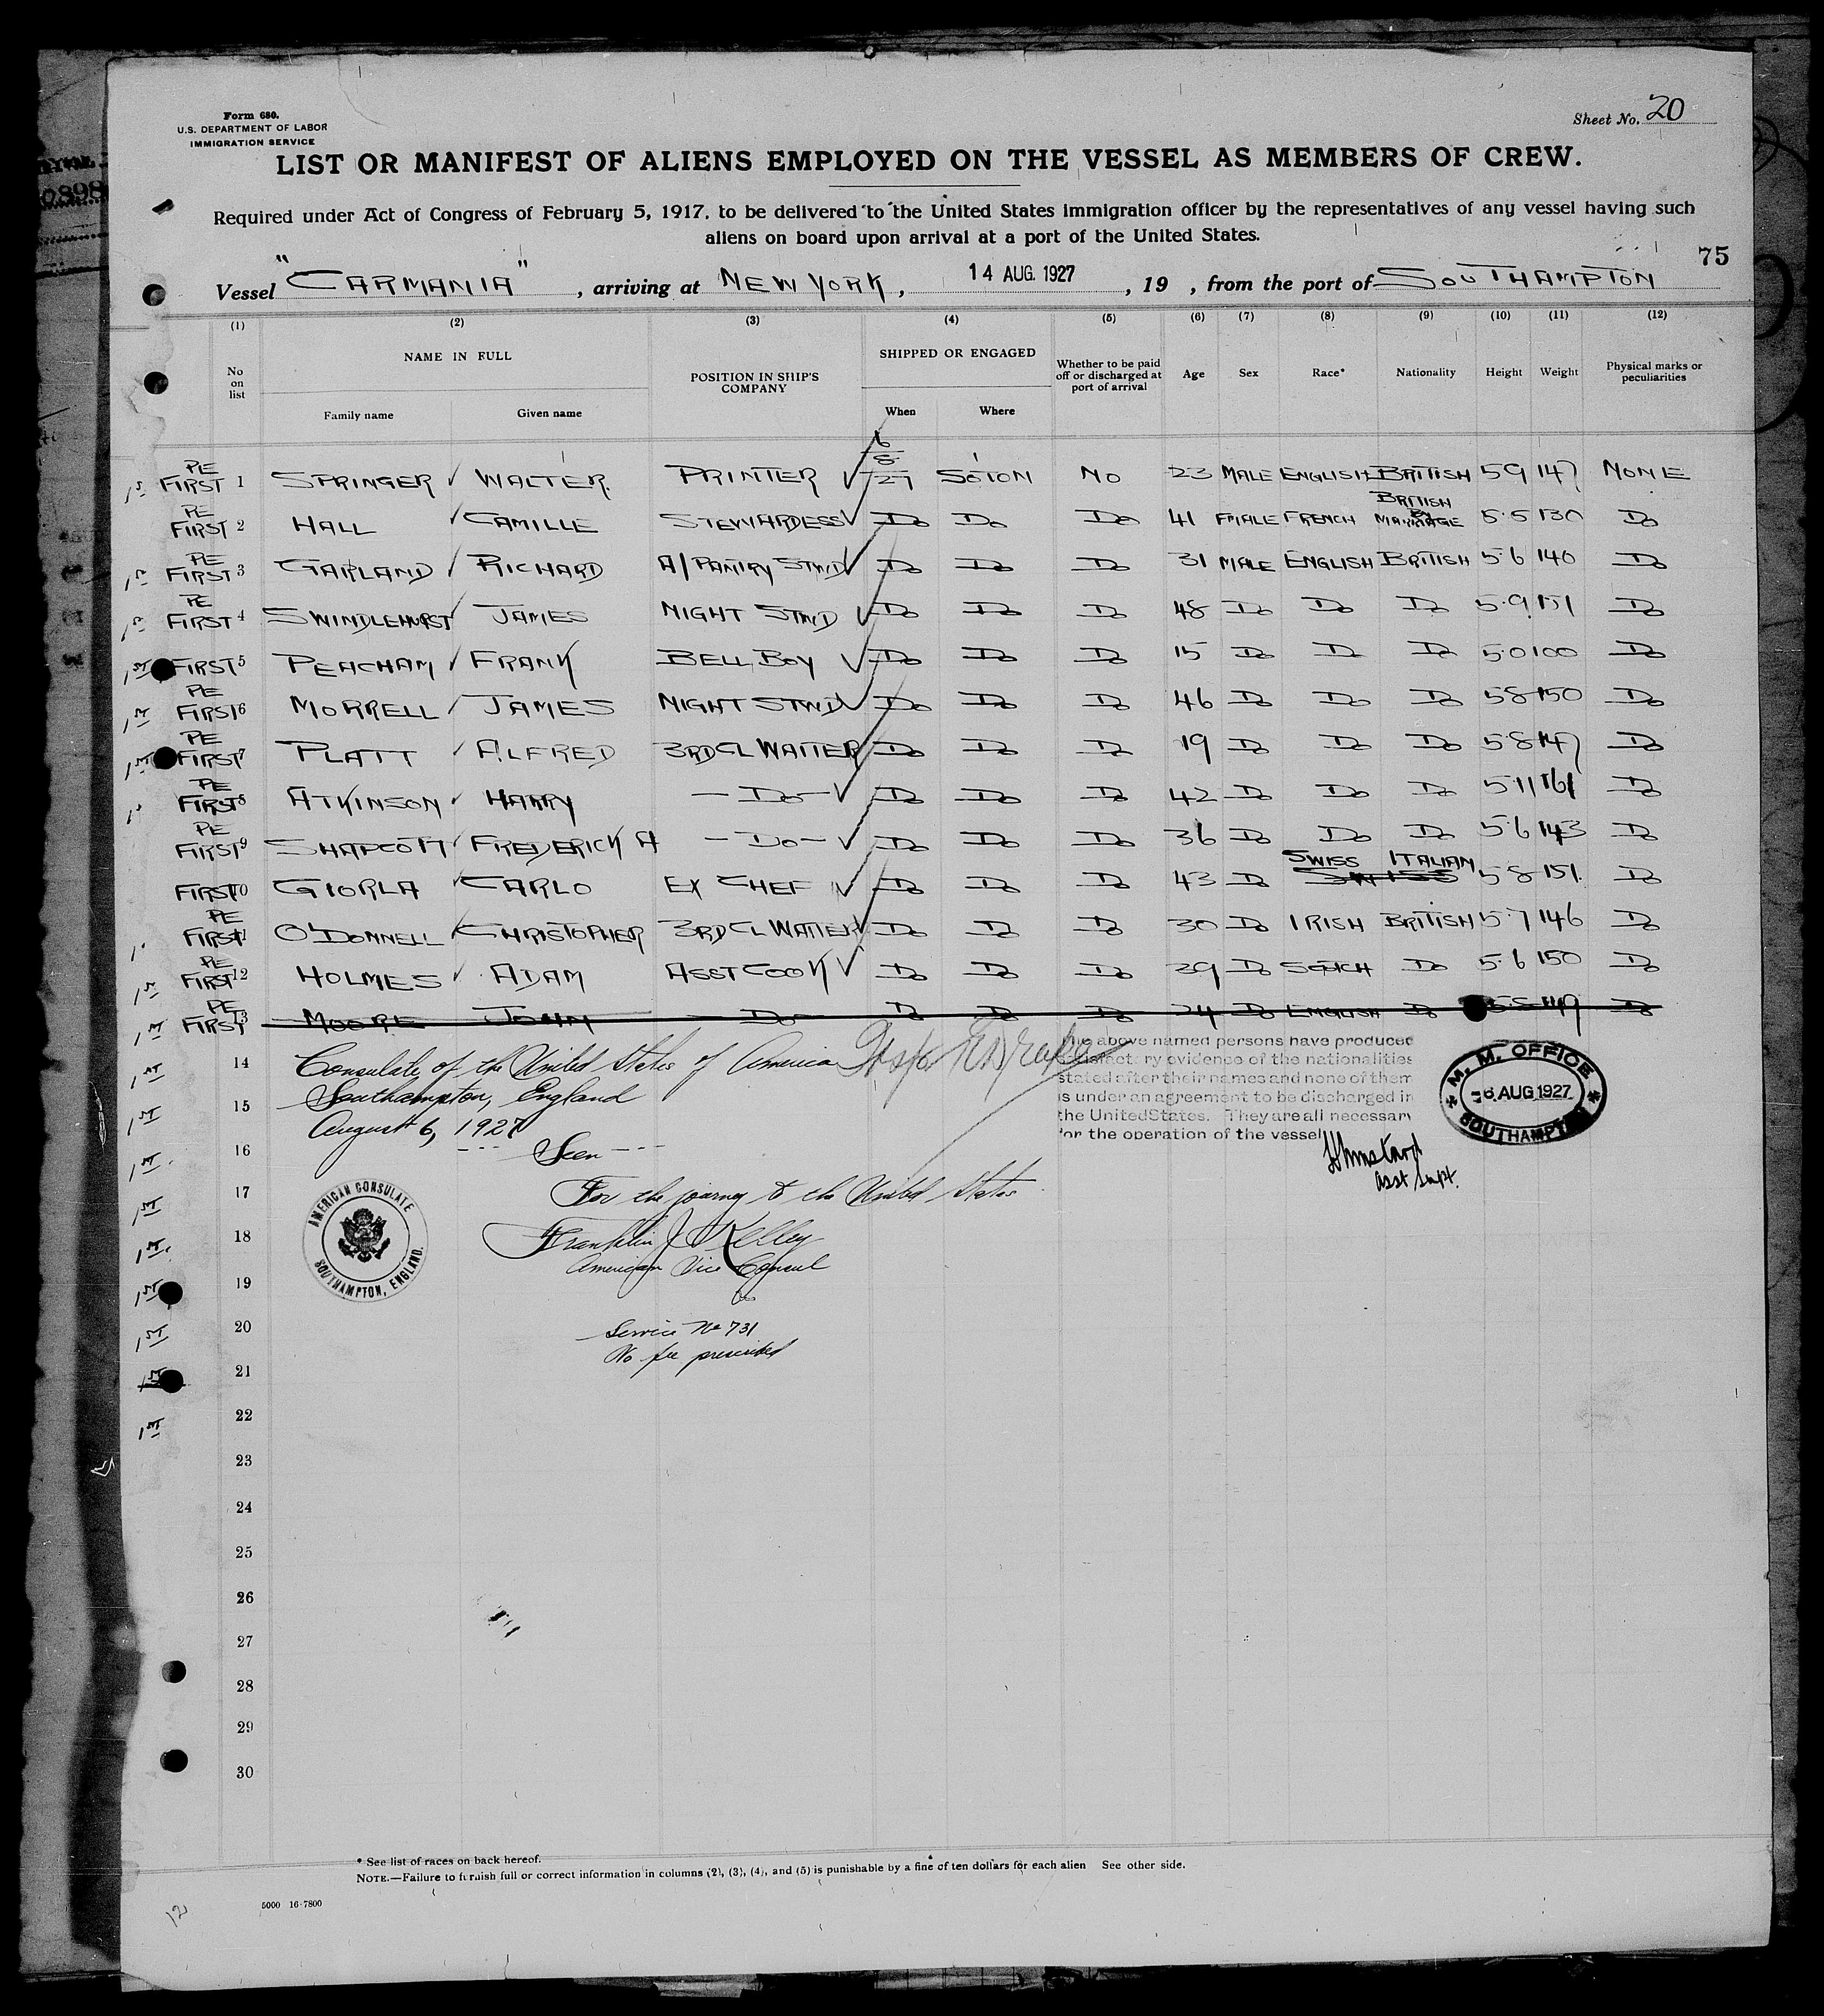 Form 680.
U.S. DEPARTMENT OF LABOR
IMMIGRATION SERVICE
Sheet No. 20
LIST OR MANIFEST OF ALIENS EMPLOYED ON THE VESSEL AS MEMBERS OF CREW.
Required under Act of Congress of February 5, 1917, to be delivered to the United States immigration officer by the representatives of any vessel having such
aliens on board upon arrival at a port of the United States.
75
Vessel "CARMANIA", arriving at NEW YORK, 14 AUG. 1927, 19 , from the port of SOUTHAMPTON
(1) (2) (3) (4) (5) (6) (7) (8) (9) (10) (11) (12)
No on list NAME IN FULL POSITION IN SHIP'S COMPANY SHIPPED OR ENGAGED Whether to be paid off or discharged at port of arrival Age Sex Race* Nationality Height Weight Physical marks or peculiarities
Family name Given name When Where
1st PE FIRST 1 SPRINGER WALTER. PRINTER 6/8/27 SOTON NO 23 MALE ENGLISH BRITISH 5 9 147 NONE
PE FIRST 2 HALL CAMILLE STEWARDESS DO DO DO 41 FMALE FRENCH BRITISH BY MARRIAGE 5·5 130 DO
1st PE FIRST 3 GARLAND RICHARD A/PANTRY STWD DO DO DO 31 MALE ENGLISH BRITISH 5·6 140 DO
1st PE FIRST 4 SWINDLEHURST JAMES NIGHT STWD DO DO DO 48 DO DO DO 5·9 151 DO
1st FIRST 5 PEACHAM FRANK BELL BOY DO DO DO 15 DO DO DO 5·0 100 DO
1st PE FIRST 6 MORRELL JAMES NIGHT STWD DO DO DO 46 DO DO DO 5 8 150 DO
1st PE FIRST 7 PLATT ALFRED 3RD CL WAITER DO DO DO 19 DO DO DO 5·8 147 DO
1st PE FIRST 8 ATKINSON HARRY — DO — DO DO DO 42 DO DO DO 5·11 161 DO
PE FIRST 9 SHAPCOTT FREDERICK A — DO — DO DO DO 36 DO DO DO 5·6 143 DO
FIRST 10 GIORLA CARLO EX CHEF DO DO DO 43 DO SWISS ITALIAN SWISS 5 8 151. DO
PE FIRST 11 O'DONNELL CHRISTOPHER 3RD CL WAITER DO DO DO 30 DO IRISH BRITISH 5·7 146 DO
1st PE FIRST 12 HOLMES ADAM ASST COOK DO DO DO 39 DO SCOTCH DO 5·6 150 DO
1st PE FIRST 13 MOORE JOHN — DO — DO DO DO 24 DO ENGLISH DO 5·8 149 DO
1st 14 Consulate of the United States of America
The above named persons have produced
satisfactory evidence of the nationalities
stated after their names and none of them
is under an agreement to be discharged in
the United States. They are all necessary
for the operation of the vessel
M. M. OFFICE
6 AUG 1927
SOUTHAMPTON
Asst Supt.
1st 15 Southampton, England
August 6, 1927
1st 16 Seen ---
1st 17 For the journey to the United States
AMERICAN CONSULATE
SOUTHAMPTON, ENGLAND.
1st 18 Franklin J Kelley
American Vice Consul
1st 19
1st 20 Service No 731
No fee prescribed
1st 21
1st 22
23
24
25
26
27
28
29
30
* See list of races on back hereof.
NOTE.—Failure to furnish full or correct information in columns (2), (3), (4), and (5) is punishable by a fine of ten dollars for each alien See other side.
5000 16-7800
12